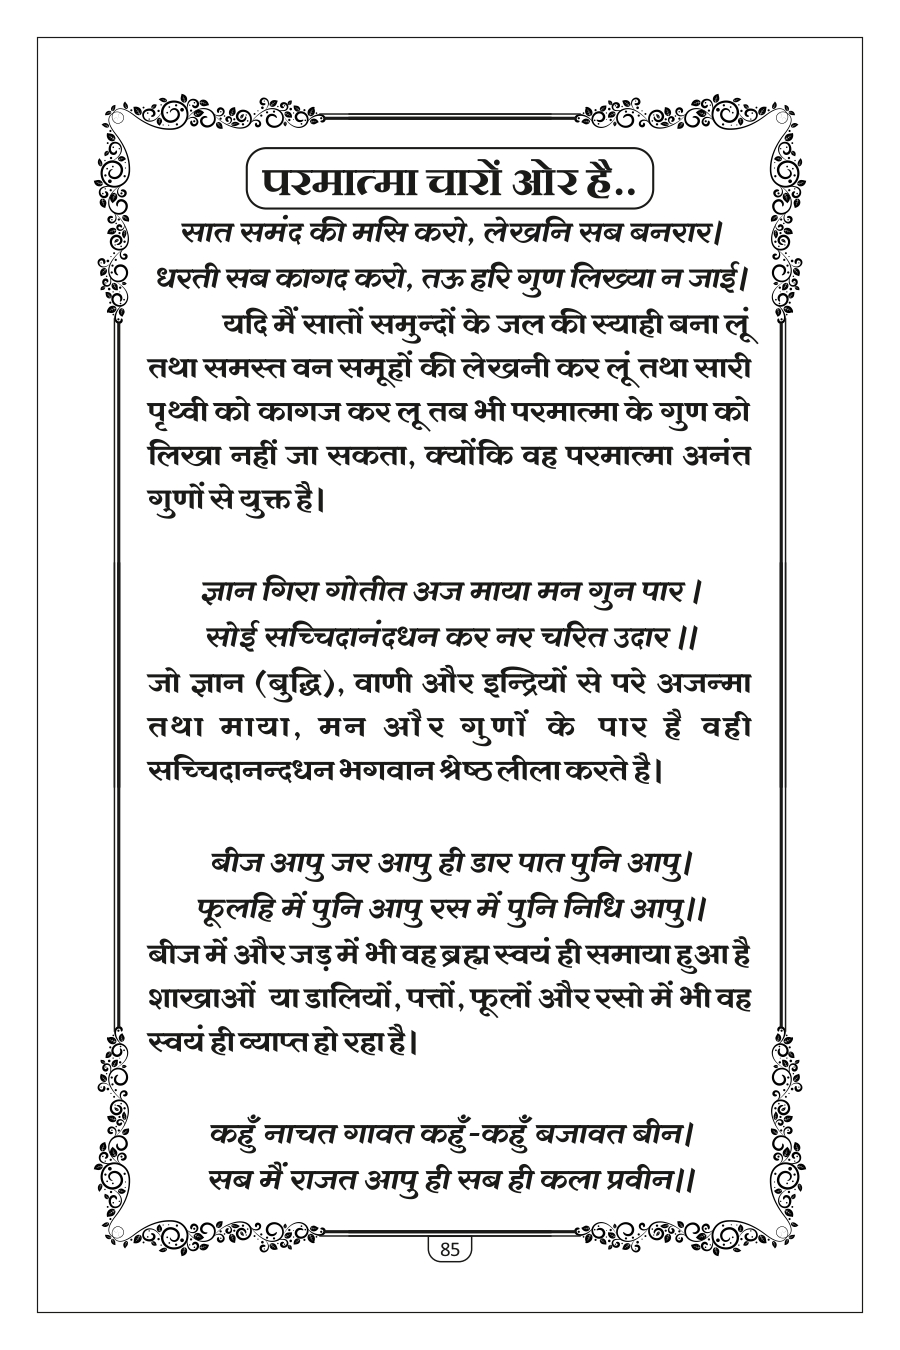 परमात्मा चारों ओर है..
सात समंद की मसि करो, लेखनि सब बनरार।
धरती सब कागद करो, तऊ हरि गुण लिख्या न जाई।
यदि मैं सातों समुन्दों के जल की स्याही बना लूं
तथा समस्त वन समूहों की लेखनी कर लूं तथा सारी
पृथ्वी को कागज कर लू तब भी परमात्मा के गुण को
लिखा नहीं जा सकता, क्योंकि वह परमात्मा अनंत
गुणों से युक्त है।
ज्ञान गिरा गोतीत अज माया मन गुन पार ।
सोई सच्चिदानंदधन कर नर चरित उदार ।।
जो ज्ञान (बुद्धि), वाणी और इन्द्रियों से परे अजन्मा
तथा माया, मन और गुणों के पार है वही
सच्चिदानन्दधन भगवान श्रेष्ठ लीला करते है।
बीज आपु जर आपु ही डार पात पुनि आपु।
फूलहि में पुनि आपु रस में पुनि निधि आपु।।
बीज में और जड़ में भी वह ब्रह्म स्वयं ही समाया हुआ है
शाखाओं या डालियों, पत्तों, फूलों और रसो में भी वह
स्वयं ही व्याप्त हो रहा है।
कहुँ नाचत गावत कहुँ-कहुँ बजावत बीन।
सब मैं राजत आपु ही सब ही कला प्रवीन।।
85